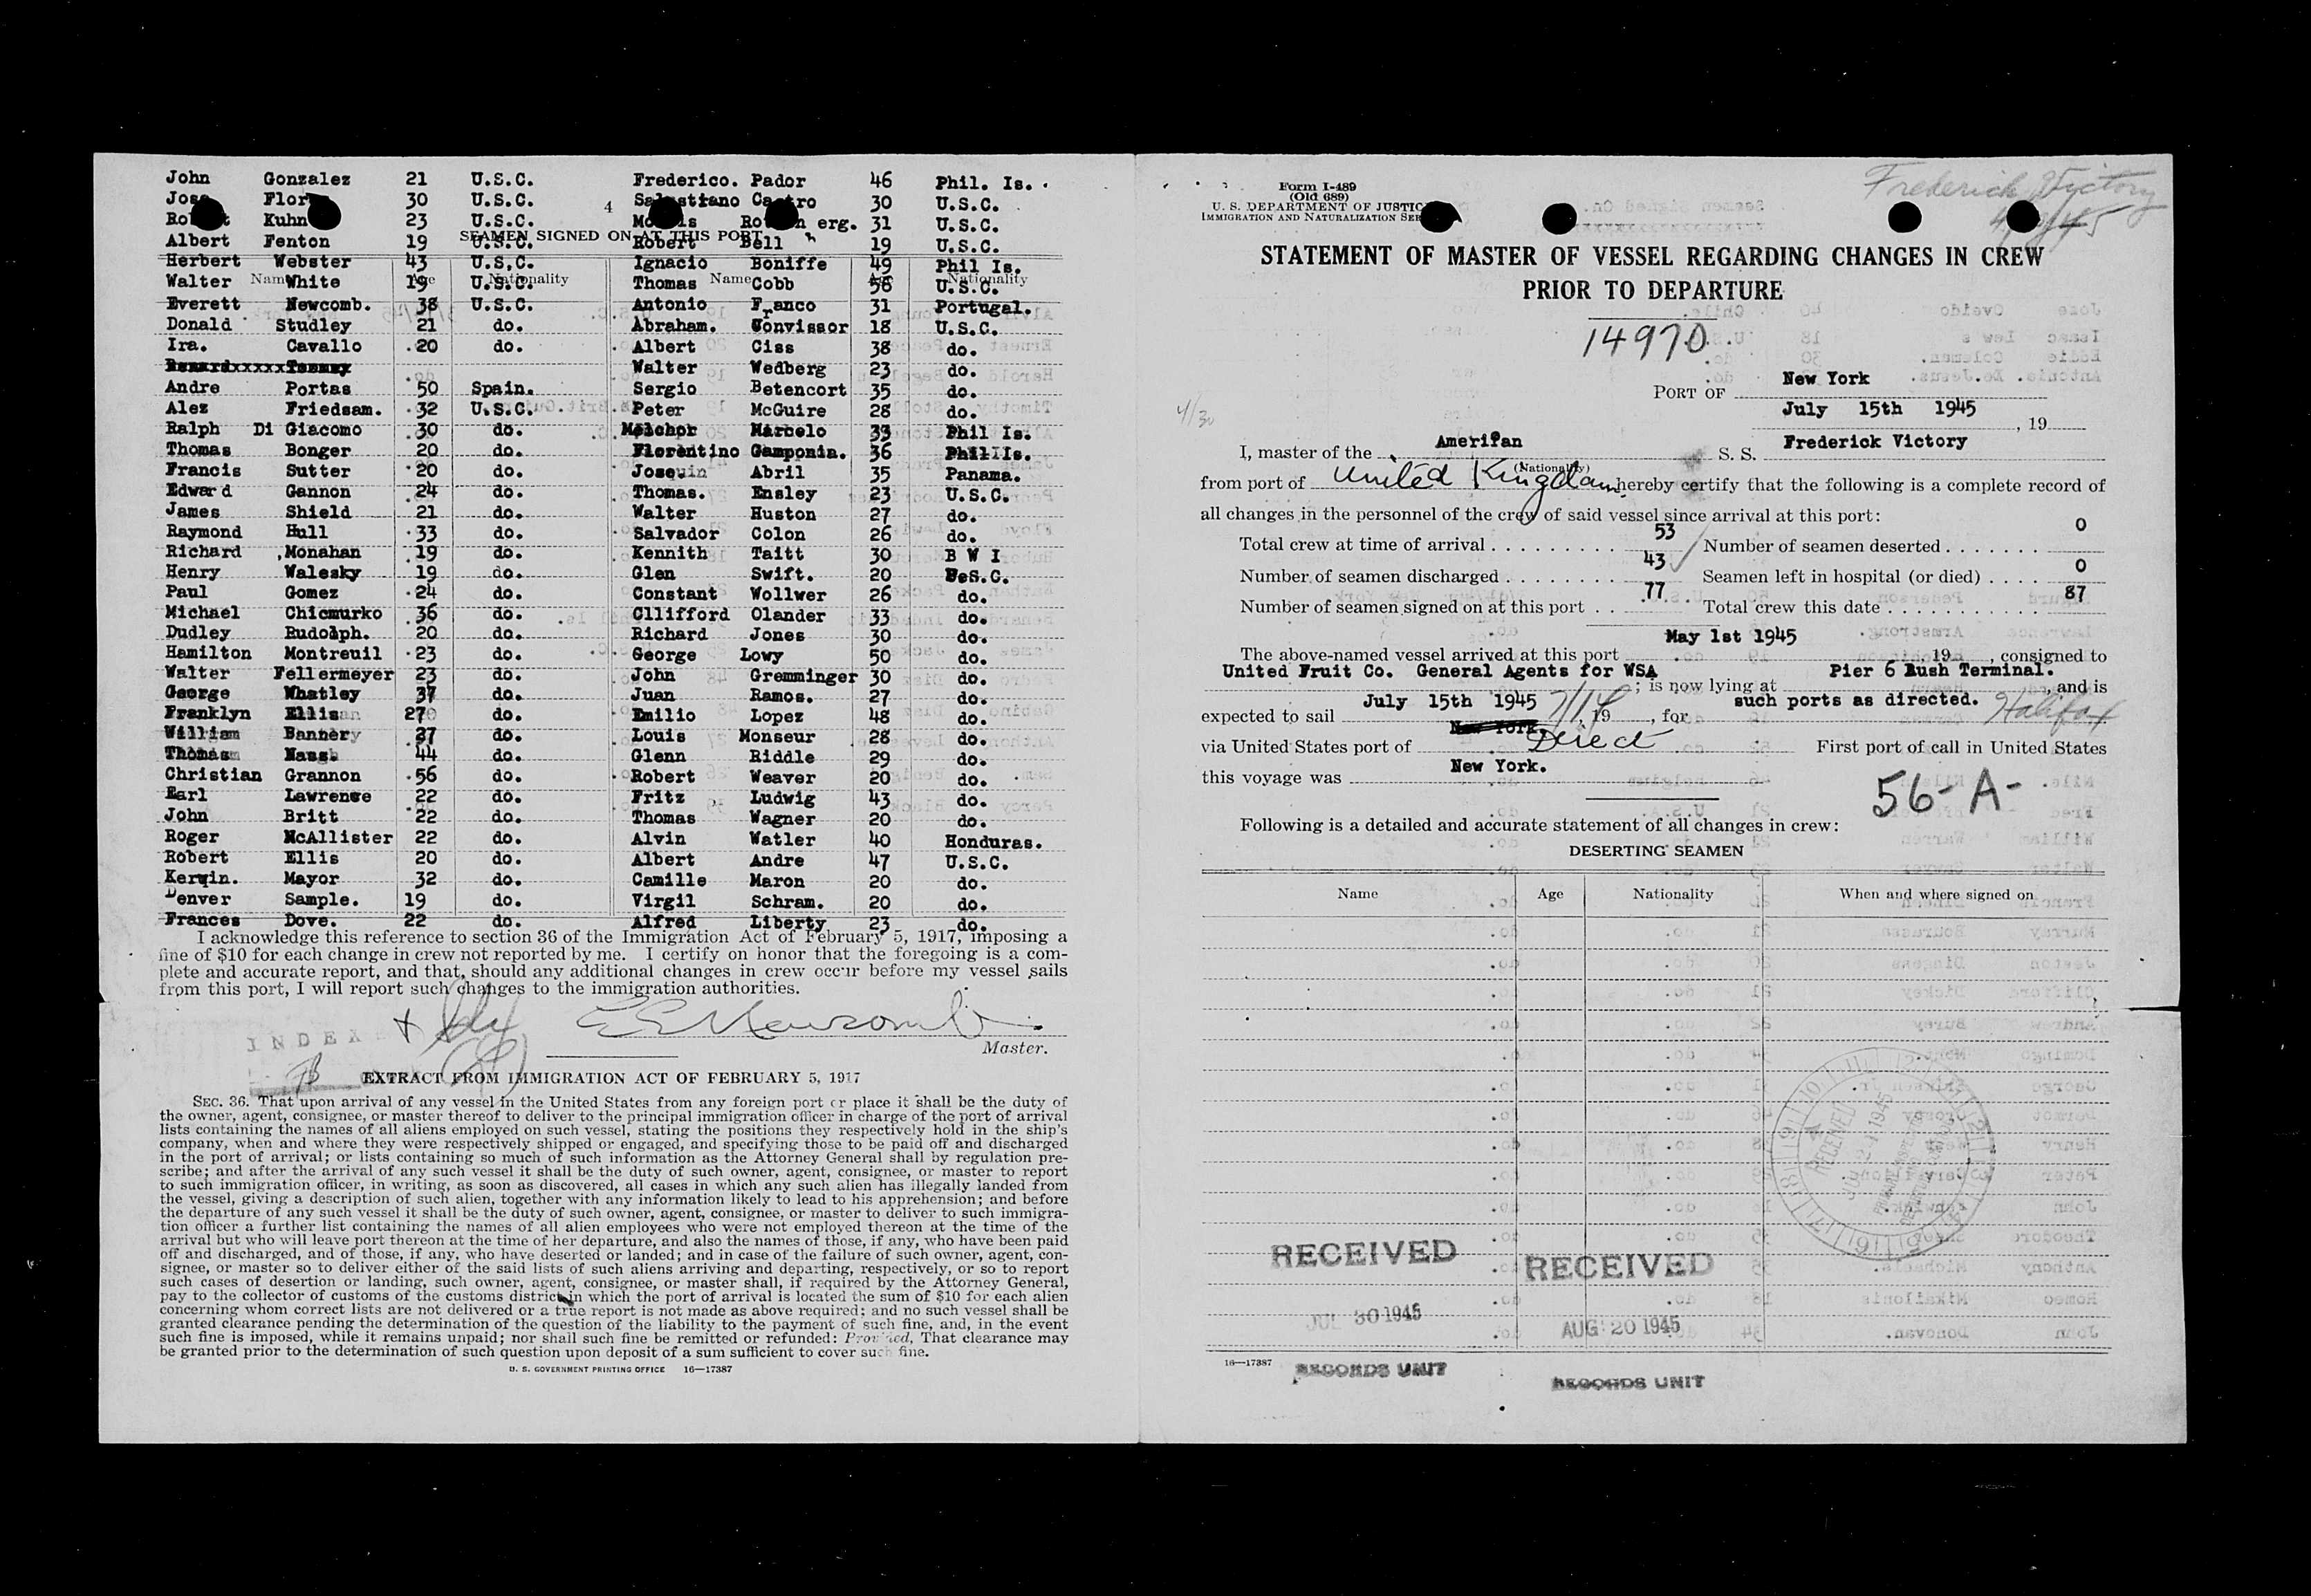 John Gonzalez 21 U.S.C.
Jose 30 U.S.C.
Kuhn 23 U.S.C.
Albert Fenton 19 U.S.C.
Herbert Webster 43 U.S.C.
Walter White 19 U.S.C.
Everett Newcomb. 38 U.S.C.
Donald Studley 21 do.
Ira. Cavallo 20 do.
Andre Portas 50 Spain.
Alez Friedsam. 32 U.S.C.
Ralph Di Giacomo 30 do.
Thomas Bonger 20 do.
Francis Sutter 20 do.
Edward Gannon 24 do.
James Shield 21 do.
Raymond Hull 33 do.
Richard Monahan 19 do.
Henry Walesky 19 do.
Paul Gomez 24 do.
Michael Chicmurko 36 do.
Dudley Rudolph. 20 do.
Hamilton Montreuil 23 do.
Walter Fellermeyer 23 do.
George Whatley 37 do.
Franklyn Ellis 27 do.
William Bannery 37 do.
Thomas 44 do.
Christian Grannon 56 do.
Earl Lawrence 22 do.
John Britt 22 do.
Roger McAllister 22 do.
Robert Ellis 20 do.
Kerwin. Mayor 32 do.
Denver Sample. 19 do.
Frances Dove. 22 do.
4
SEAMEN SIGNED ON AT THIS PORT
Name Age Nationality Name Age Nationality
Frederico. Pador 46 Phil. Is.
30 U.S.C.
erg. 31 U.S.C.
Robert Bell 19 U.S.C.
Ignacio Boniffe 49 Phil Is.
Thomas Cobb 58 U.S.C.
Antonio Franco 31 Portugal.
Abraham. Convissor 18 U.S.C.
Albert Ciss 38 do.
Walter Wedberg 23 do.
Sergio Betencort 35 do.
Peter McGuire 28 do.
Melchor Marcelo 33 Phil Is.
Florentino Gamponia. 36 Phil Is.
Josequin Abril 35 Panama.
Thomas. Ensley 23 U.S.C.
Walter Huston 27 do.
Salvador Colon 26 do.
Kennith Taitt 30 B W I
Glen Swift. 20 UeS.C.
Constant Wollwer 26 do.
Cllifford Olander 33 do.
Richard Jones 30 do.
George Lowy 50 do.
John Gremminger 30 do.
Juan Ramos. 27 do.
Emilio Lopez 48 do.
Louis Monseur 28 do.
Glenn Riddle 29 do.
Robert Weaver 20 do.
Fritz Ludwig 43 do.
Thomas Wagner 20 do.
Alvin Watler 40 Honduras.
Albert Andre 47 U.S.C.
Camille Maron 20 do.
Virgil Schram. 20 do.
Alfred Liberty 23 do.
I acknowledge this reference to section 36 of the Immigration Act of February 5, 1917, imposing a
fine of $10 for each change in crew not reported by me. I certify on honor that the foregoing is a com-
plete and accurate report, and that, should any additional changes in crew occur before my vessel sails
from this port, I will report such changes to the immigration authorities.
E E Newcomb
Master.
INDEX
EXTRACT FROM IMMIGRATION ACT OF FEBRUARY 5, 1917
SEC. 36. That upon arrival of any vessel in the United States from any foreign port or place it shall be the duty of
the owner, agent, consignee, or master thereof to deliver to the principal immigration officer in charge of the port of arrival
lists containing the names of all aliens employed on such vessel, stating the positions they respectively hold in the ship's
company, when and where they were respectively shipped or engaged, and specifying those to be paid off and discharged
in the port of arrival; or lists containing so much of such information as the Attorney General shall by regulation pre-
scribe; and after the arrival of any such vessel it shall be the duty of such owner, agent, consignee, or master to report
to such immigration officer, in writing, as soon as discovered, all cases in which any such alien has illegally landed from
the vessel, giving a description of such alien, together with any information likely to lead to his apprehension; and before
the departure of any such vessel it shall be the duty of such owner, agent, consignee, or master to deliver to such immigra-
tion officer a further list containing the names of all alien employees who were not employed thereon at the time of the
arrival but who will leave port thereon at the time of her departure, and also the names of those, if any, who have been paid
off and discharged, and of those, if any, who have deserted or landed; and in case of the failure of such owner, agent, con-
signee, or master so to deliver either of the said lists of such aliens arriving and departing, respectively, or so to report
such cases of desertion or landing, such owner, agent, consignee, or master shall, if required by the Attorney General,
pay to the collector of customs of the customs district in which the port of arrival is located the sum of $10 for each alien
concerning whom correct lists are not delivered or a true report is not made as above required; and no such vessel shall be
granted clearance pending the determination of the question of the liability to the payment of such fine, and, in the event
such fine is imposed, while it remains unpaid; nor shall such fine be remitted or refunded: Provided, That clearance may
be granted prior to the determination of such question upon deposit of a sum sufficient to cover such fine.
U. S. GOVERNMENT PRINTING OFFICE 16—17387
Frederick Victory
Form I-489
(Old 689)
U. S. DEPARTMENT OF JUSTIC
IMMIGRATION AND NATURALIZATION SER
STATEMENT OF MASTER OF VESSEL REGARDING CHANGES IN CREW
PRIOR TO DEPARTURE
14970
PORT OF New York
July 15th 1945, 19
4/30
I, master of the Amerifan S. S. Frederick Victory
(Nationality)
from port of United Kingdom hereby certify that the following is a complete record of
all changes in the personnel of the crew of said vessel since arrival at this port:
Total crew at time of arrival 53 Number of seamen deserted 0
Number of seamen discharged 43 Seamen left in hospital (or died) 0
Number of seamen signed on at this port 77 Total crew this date 87
The above-named vessel arrived at this port May 1st 1945 19, consigned to
United Fruit Co. General Agents for WSA; is now lying at Pier 6 Bush Terminal., and is
expected to sail July 15th 1945 7/14, 19, for such ports as directed. Halifax
via United States port of New York. Direct First port of call in United States
this voyage was New York.
56-A-
Following is a detailed and accurate statement of all changes in crew:
DESERTING SEAMEN
Name Age Nationality When and where signed on
RECEIVED
JUL 21 1945
RECEIVED
JUL 30 1945
RECORDS UNIT
RECEIVED
AUG 20 1945
RECORDS UNIT
16—17387